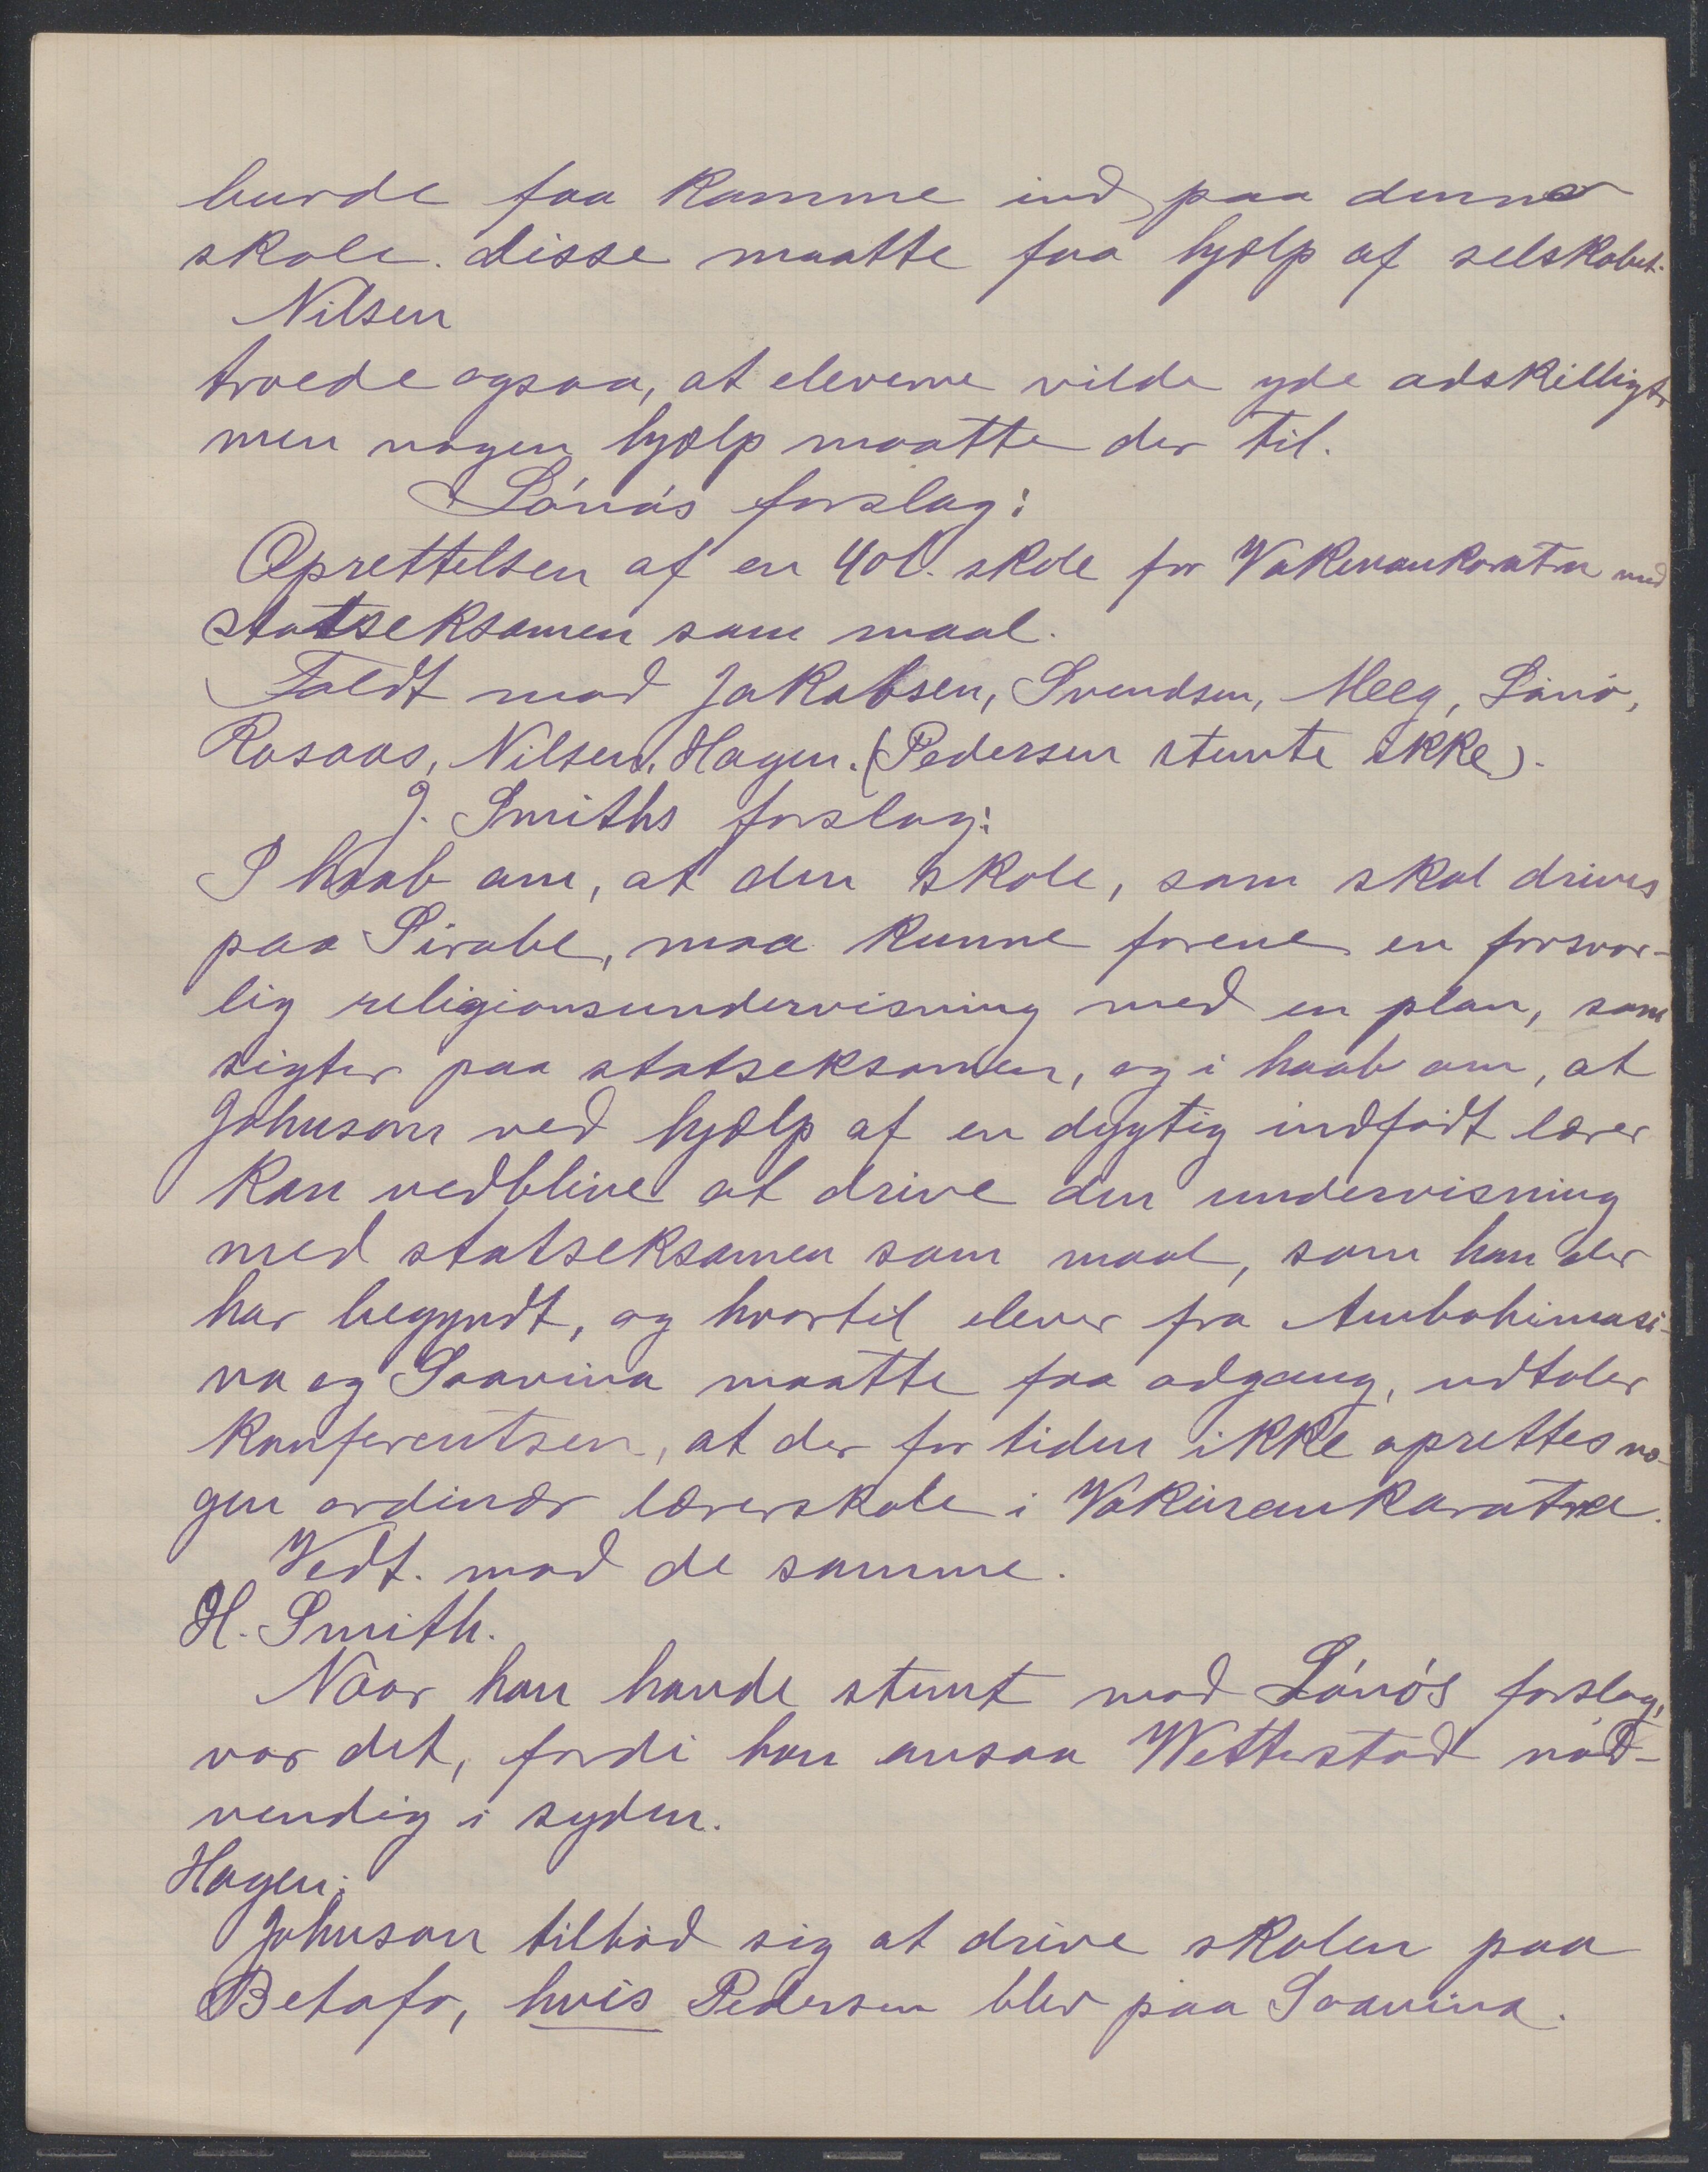 burde faa komme ind paa denne
skole. Disse maatte faa hjælp af selskabet.
Nilsen
troede ogsaa, at eleverne vilde yde adskilligt,
men nogen hjælp maatte der til.
Lönös forslag:
Oprettelsen af en skole for Vakinankaratra med
statseksamen som maal.
Faldt mod Jakobsen, Svendsen, Meeg, Lönö,
Rosaas, Nilsen, Hagen. (Pedersen stemte ikke).
J. Smiths forslag:
I haab om, at den skole, som skal drives
paa Sirabe, maa kunne forene en forsvar-
lig religionsundervisning med en plan, som
sigter paa statseksamen, og i haab om, at
Johnson ved hjælp af en dygtig indfødt lærer
kan vedblive at drive den undervisning
med statseksamen som maal, som han der
har begyndt, og hvortil elever fra Ambohimasi-
na og Soavina maatte faa adgang, udtaler
konferentsen, at der for tiden ikke oprettes no-
gen ordinær lærerskole i Vakinankaratra.
Vedt. mod de samme.
H. Smith.
Naar han havde stemt mod Lönös forslag,
var det, fordi han ansaa Wetterstad nød-
vendig i syden.
Hagen:
Johnson tilbød sig at drive skolen paa
Betafo, hvis Pedersen blev paa Soavina.